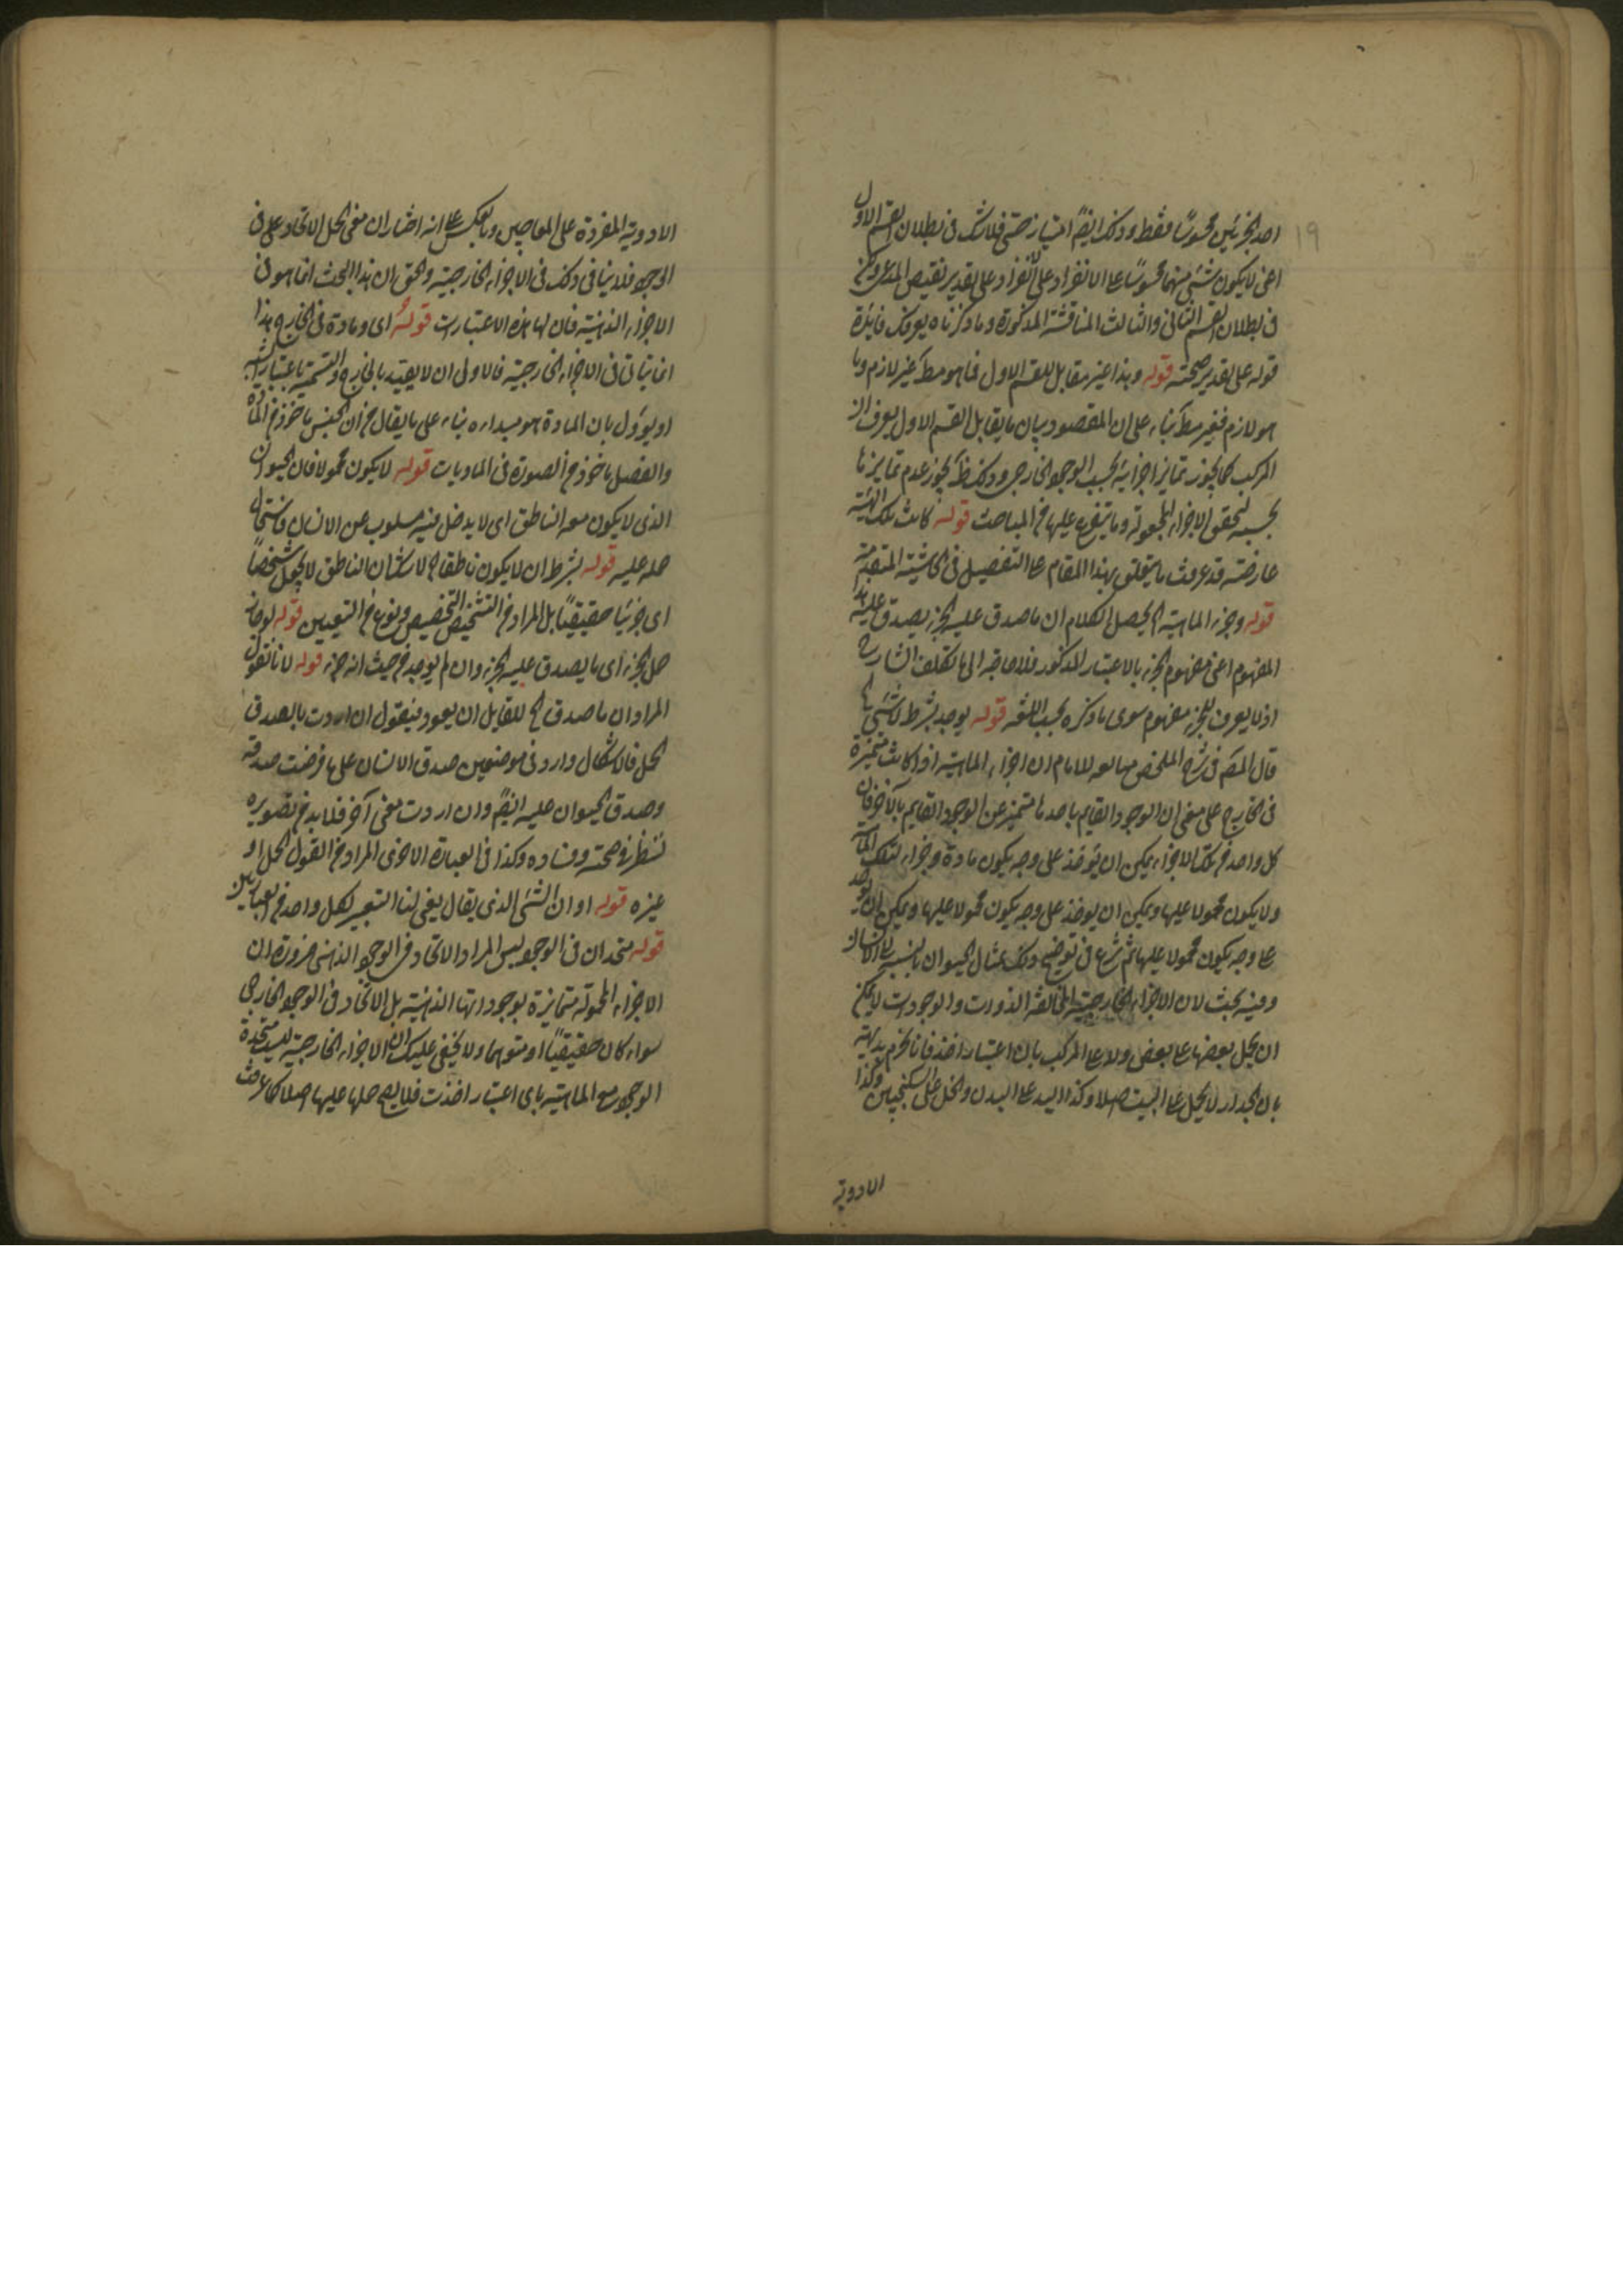 ١٩
احد الجزئين محسوسا فقط وذلك ايضا امتياز حسى فلا شك فى بطلان القسم الاول
اعنى لا يكون شئ منهما محسوسا على الانفراد وعلى تقدير نقيض المدعى
فى بطلان القسم الثانى والثالث المناقشة المذكورة وما ذكرناه يعرفك فايدة
قوله على تقدير صحته قوله وهذا غير مقابل للقسم الاول فما هو مط غير لازم وما
هو لازم فغير مط بناء على ان المقصود بيان ما يقابل القسم الاول يعرف ان
المركب كما يجوز تمايز اجزايه بحسب الوجود الخارجى وذلك ظ يجوز عدم تمايزها
بحسبه لتحقق الاجزاء المحمولة وما يتفرع عليها من المباحث قوله كانت تلك الهيئة
عارضة قد عرفت ما يتعلق بهذا المقام على التفصيل فى الحاشية المتقدمة
قوله وجزء الماهية الخ محصل الكلام ان ما صدق عليه الجزء يصدق عليه هذا
المفهوم اعنى مفهوم الجزء بالاعتبار المذكور فلا حاجة الى ما تكلف الشارح
اذ لا يعرف للجزء مفهوم سوى ما ذكره بحسب اللغة قوله يوجد بشرط لا شئ
قال المص فى شرح الملخص متابعه للامام ان اجزاء الماهية اذا كانت متميزة
فى الخارج على معنى ان الوجود القايم باحدها متميز عن الوجود القايم بالآخر فان
كل واحد من تلك الاجزاء يمكن ان يؤخذ على وجه يكون مادة وجزاء لتلك الماهية
ولا يكون محمولا عليها ويمكن ان يوخذ على وجه يكون محمولا عليها ويمكن ان يوخذ
على وجه يكون محمولا عليها ثم شرع فى توضيح ذلك بمثال الحيوان بالنسبة الى الانسان
وفيه بحث لان الاجزاء الخارجية المخالفة الذوات والوجودات لا يمكن
ان يحمل بعضها على بعض ولا على المركب باى اعتبار اخذ فانا نجزم بداهة
بان الجدار لا يحمل على البيت اصلا وكذا اليد على البدن والخل على السكنجبين وكذا
الادوية
الادوية المفردة على المعاجين وبالعكس على انه اختار ان معنى الحمل الاتحاد على فى
الوجود فلا ينافى ذلك فى الاجزاء الخارجية والحق ان هذا البحث انما هو فى
الاجزاء الذهنية فان لها هذه الاعتبارات قوله اى ومادة فى الخارج هذا
انما يتاتى فى الاجزاء الخارجية فالاولى ان لا يقيد بالخارج والتسمية باعتبار
او يوول بان المادة هو مبداءه بناء على ما يقال من ان الجنس ماخوذ من المادة
والفصل ماخوذ من الصورة فى الماديات قوله لا يكون محمولا فان الحيوان
الذى لا يكون معه الناطق اى لا يدخل فيه مسلوب عن الانسان فاستحال
حمله عليه قوله بشرط ان لا يكون ناطقا الخ لا شك ان الناطق لا يجعل شخصا
اى جزئيا حقيقيا بل المراد من التشخيص التخصيص ونوع من التعيين قوله لو جاز
حمل الجزء اى ما يصدق عليه الجزء وان لم يوجد من حيث انه جزء قوله لانا نقول
المراد ان ما صدق الخ للقايل ان يعود فيقول ان اردت بالصدق
الحمل فالاشكال وارد فى موضعين صدق الانسان على ما فرضت صدقه
وصدق الحيوان عليه ايضا وان اردت معنى آخر فلا بد من تصويره
لننظر فى صحته وفساده وكذا فى العبارة الاخرى المراد من القول الحمل او
غيره قوله او ان الشئ الذى يقال يعنى لنا التعبير لكل واحد من العبارتين
قوله متحدان فى الوجود ليس المراد الاتحاد فى الوجود الذهنى ضرورة ان
الاجزاء المحمولة متمايزة بوجوداتها الذهنية بل الاتحاد فى الوجود الخارجى
سواء كان حقيقيا او متوهما ولا يخفى عليك ان الاجزاء الخارجية ليست متحدة
الوجود مع الماهية باى اعتبار اخذت فلا يصح حملها عليها اصلا كما عرفت